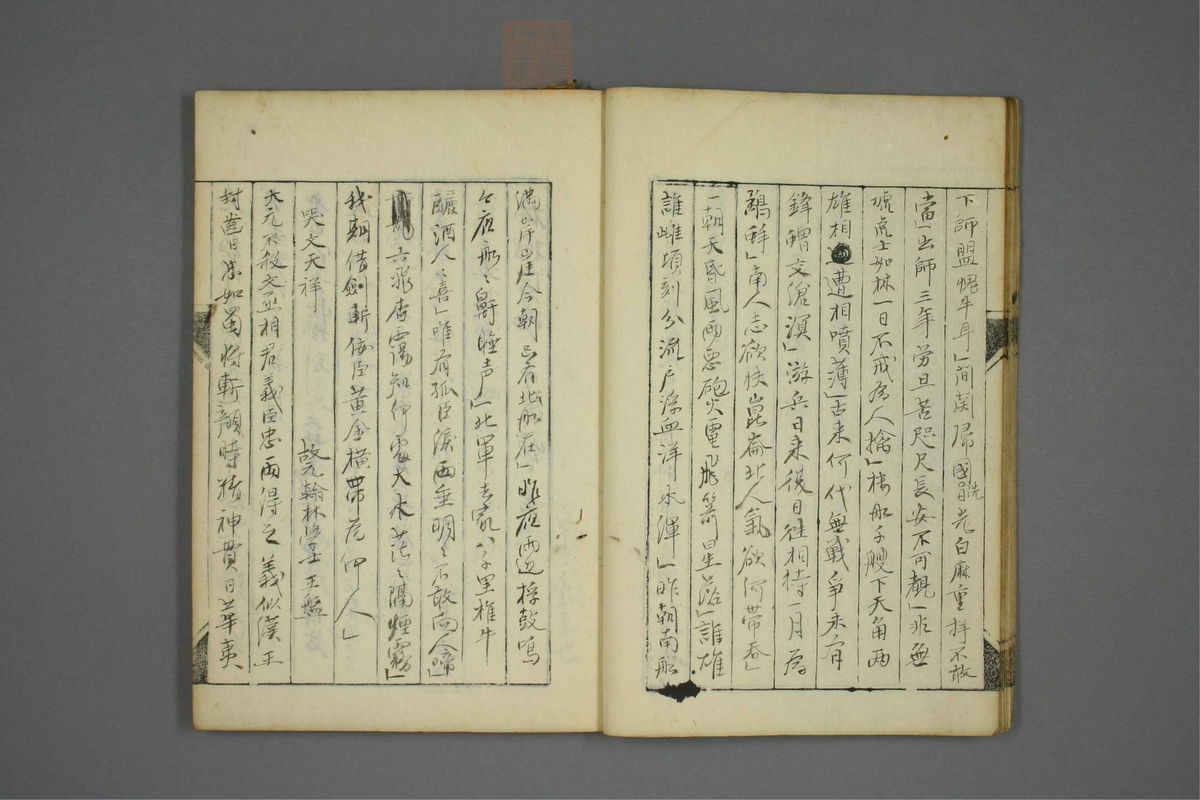 下師盟愧牛耳」間関帰國洗日光白麻重拝不敢
當」出師三年勞且苦咫尺長安不可覩」非無
虓虎士如林一日不戒為人擒」楼船千艘下天角兩
雄相遭相噴薄」古来何代無戦争未有
鋒蝟交滄溟」游兵日来復日往相持一月為
鷸蚌」南人志欲扶崑崙北人氣欲河帶吞」
一朝天昏風雨惡砲火雷飛箭星落」誰雄
誰雌頃刻分流尸浮血洋水渾」昨朝南船
満岸崖今朝只有北船在」昨夜兩辺桴鼓鳴
今夜船〻鼾睡声」北軍去家八千里椎牛
釃酒人〻喜」唯有孤臣淚兩垂明〻不敢向人啼」
六飛杳靄知何處大水茫〻隔煙霧」
我期借劍斬佞臣黄金横帯為何人」
哭文天祥
故元翰林學士王盤
大元不殺文丞相君義臣忠兩得之義似漢王
封齒日忠如蜀将斬顏時精神貫日華夷